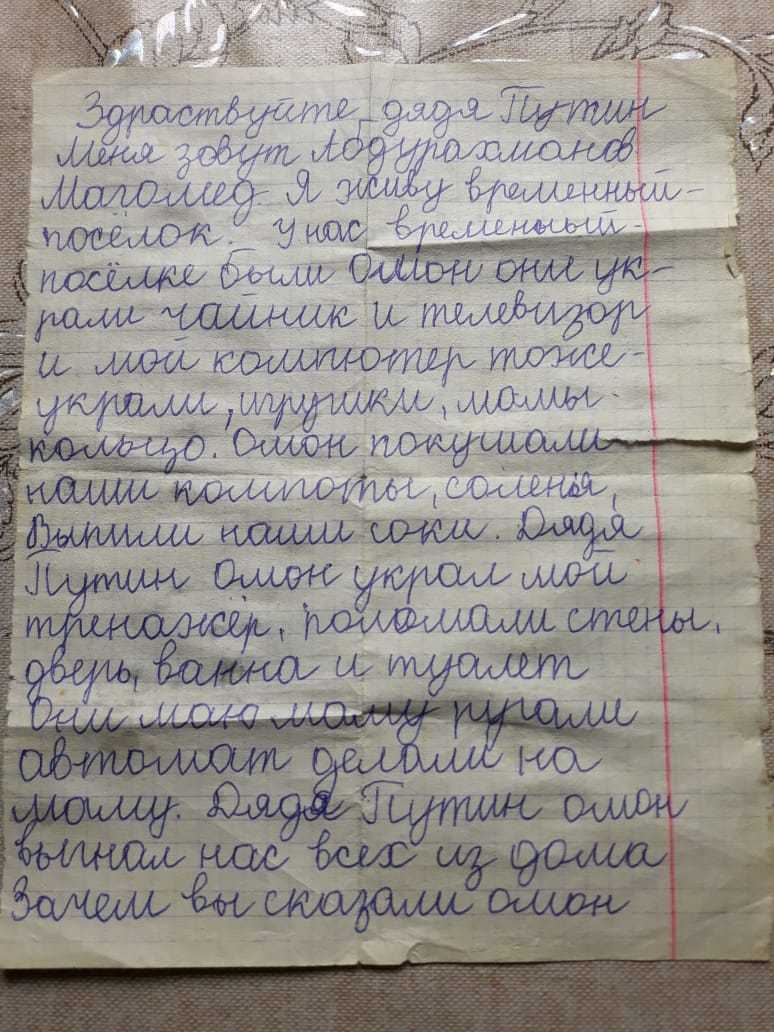 Здраствуйте дядя Путин
меня зовут Абдурахманов
Магомед. Я живу временный-
посёлок. У нас временыый-
посёлке были Омон они ук-
рали чайник и телевизор
и мой компютер тоже-
украли, игрушки, мамы
кольцо. Омон покушали
наши компоты, соленья,
Выпили наши соки. Дядя
Путин Омон украл мой
тренажёр, поломали стены,
дверь, ванна и туалет
Они маю маму ругали
автомат делали на
маму. Дядя Путин омон
выгнал нас всех из дома
Зачем вы сказали омон